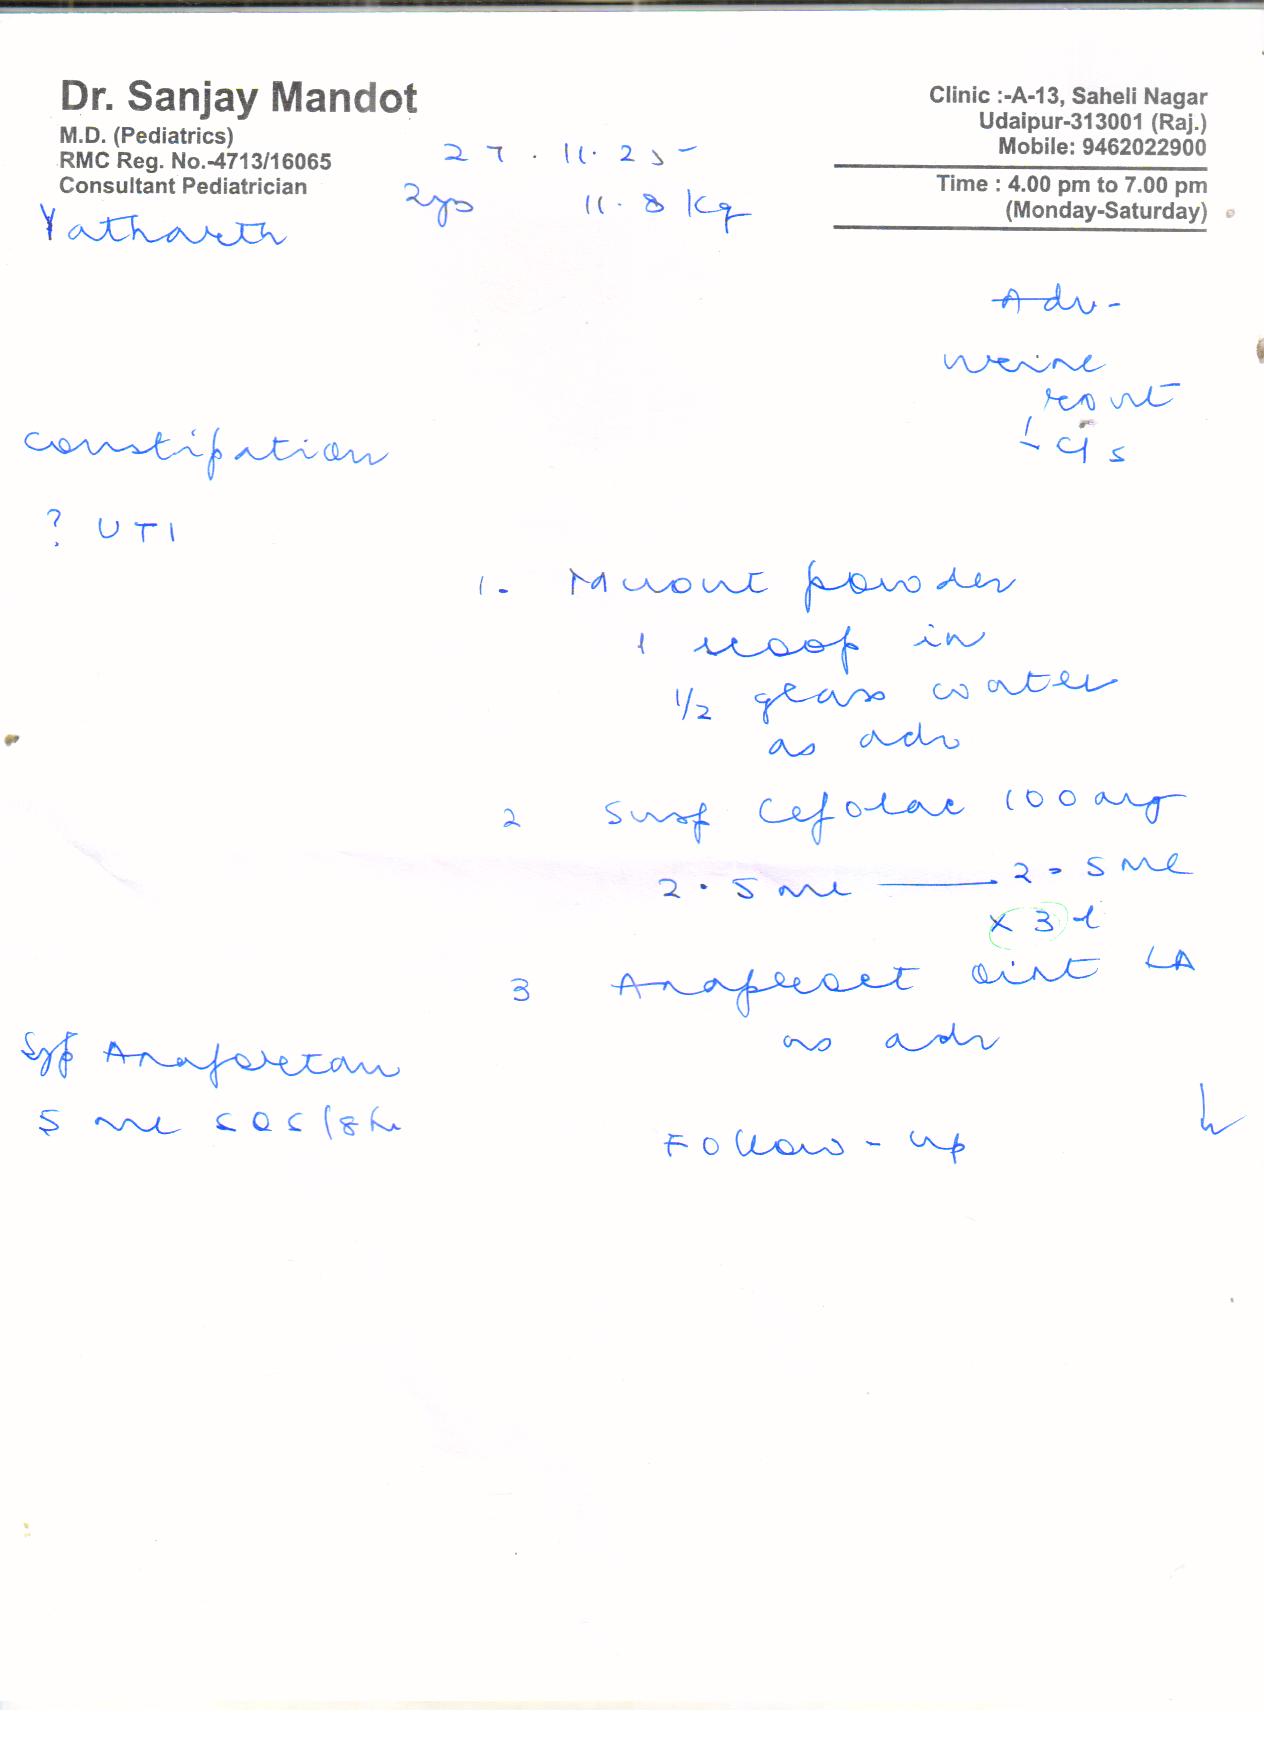 Dr. Sanjay Mandot
M.D. (Pediatrics)
RMC Reg. No.-4713/16065
Consultant Pediatrician
Clinic :-A-13, Saheli Nagar
Udaipur-313001 (Raj.)
Mobile: 9462022900
Time : 4.00 pm to 7.00 pm
(Monday-Saturday)
27.11.25
2yo 11.8 kg
Yatharth
Adv-
urine
rout
c/s
Constipation
? UTI
1. Muout powder
1 scoop in
1/2 glass water
as adv
2 Susp Cefolac 100 mg
2.5 ml — 2.5 ml
x 3 d
3 oint LA
as adv
Syp Anafortan
5 ml SOS/8h
Follow-up